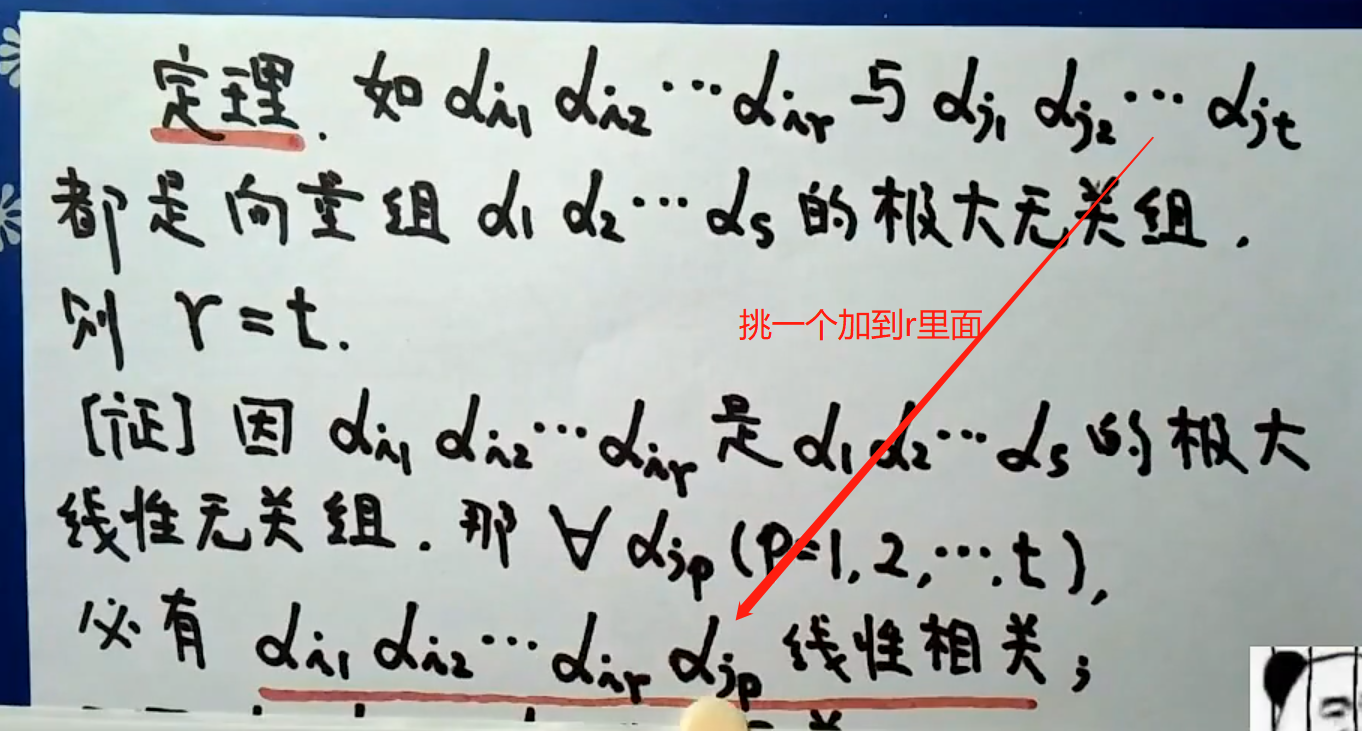 定理. 如 αi₁ αi₂ ⋯ αiᵣ 与 αj₁ αj₂ ⋯ αjₜ
都是向量组 α₁ α₂ ⋯ αₛ 的极大无关组.
则 r = t.
挑一个加到r里面
[证] 因 αi₁ αi₂ ⋯ αiᵣ 是 α₁ α₂ ⋯ αₛ 的极大
线性无关组. 那 ∀ αjₚ (p=1, 2, ⋯, t),
必有 αi₁ αi₂ ⋯ αiᵣ αjₚ 线性相关;